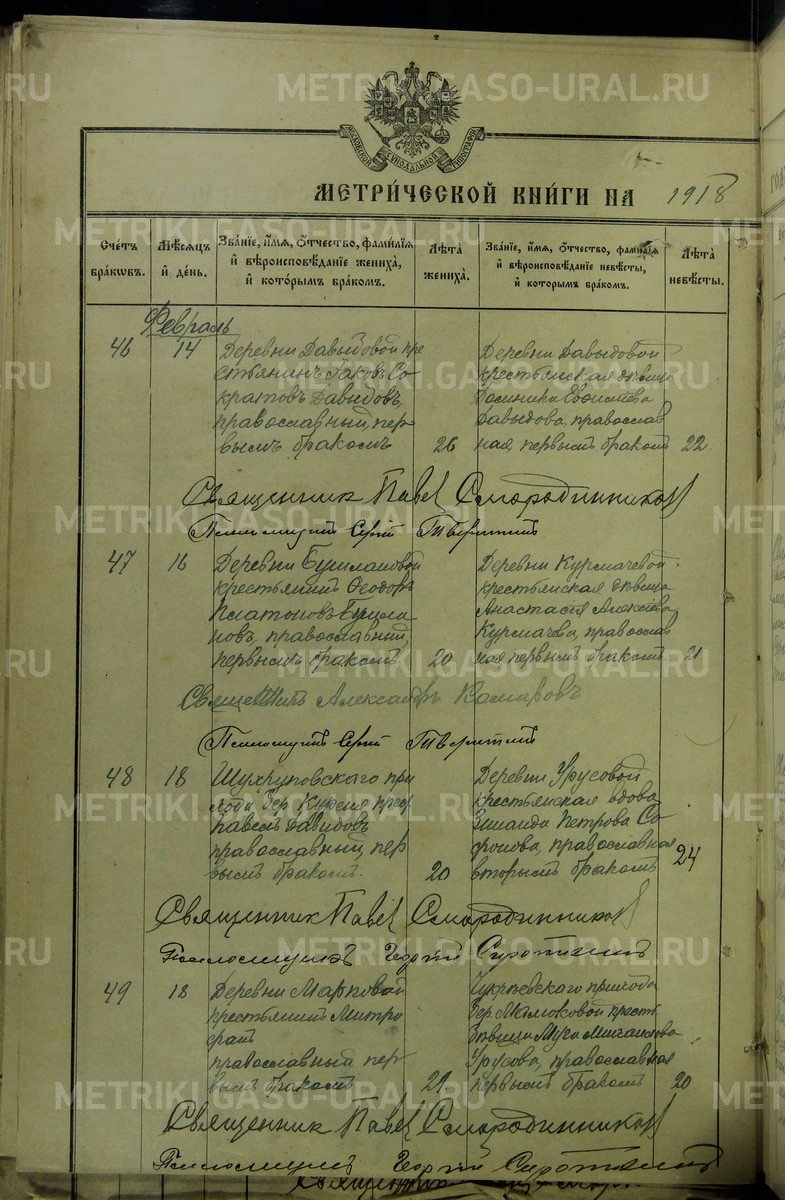 METRIKI.GASO-URAL.RU
МОСКОВСКОЙ СѴНОДАЛЬНОЙ ТИПОГРАФІИ
МЕТРИ́ЧЕСКОЙ КНИ́ГИ НА 1918
Сче́тъ бра́кѡвъ.
Мѣ́сѧцъ и҆ де́нь.
Зва́нїе, и҆́мѧ, ѻ҆́тчество, фамилїѧ
и҆ вѣроисповѣ́данїе жениха̀,
и҆ кото́рымъ бра́комъ.
Лѣ́та жениха̀.
Зва́нїе, и҆́мѧ, ѻ҆́тчество, фамилїѧ
и҆ вѣроисповѣ́данїе невѣ́сты,
и҆ кото́рымъ бра́комъ.
Лѣ́та невѣ́сты.
Февраль
46 14
Деревни Давыдовой кре
стьянинъ Іаковъ Со
кратовъ Давыдовъ,
православный, пер
вымъ бракомъ 26
Деревни Давыдовой
крестьянская дѣвица
Давыдова, православ
ная, первымъ бракомъ 22
Священник Павел Смородинников
Псаломщикъ Сергій Тверитинъ
47 16
Деревни Бушлановой
крестьянинъ Ѳеодоръ
Платоновъ Бушла
новъ, православный,
первымъ бракомъ 20
Деревни Курмачевой
крестьянская дѣвица
Анастасія Алексѣева
Курмачева, православ
ная, первымъ бракомъ 21
Священникъ Александръ Комаровъ
Псаломщикъ Сергій Тверитинъ
48 18
при
хода дер. крест.
Павелъ Давидовъ
православный, пер
вымъ бракомъ. 20
Деревни Урусовой
крестьянская вдова
Петрова Со
фонова, православная
вторымъ бракомъ 24
Священник Павел Смородинников
Псаломщикъ Георгій Сиротинъ
49 18
Деревни Марковой
крестьянинъ Митро
фанъ
православный пер
вымъ бракомъ 21
прихода
дер. крест.
дѣвица Михаилова
Урусова, православная
первымъ бракомъ 20
Священник Павел Смородинников
Псаломщикъ Георгій Сиротинъ